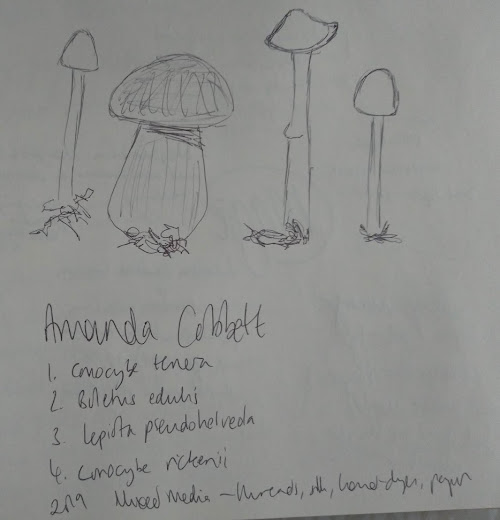 Amanda Cobbett
1. Conocybe tenera
2. Boletus edulis
3. Lepiota pseudohelveola
4. Conocybe rickenii
2019 Mixed Media - threads, silk, hand-dyes, paper